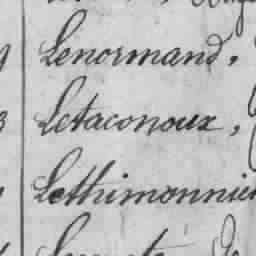 Lenormand,
Letaconoux,
Lethimonnier